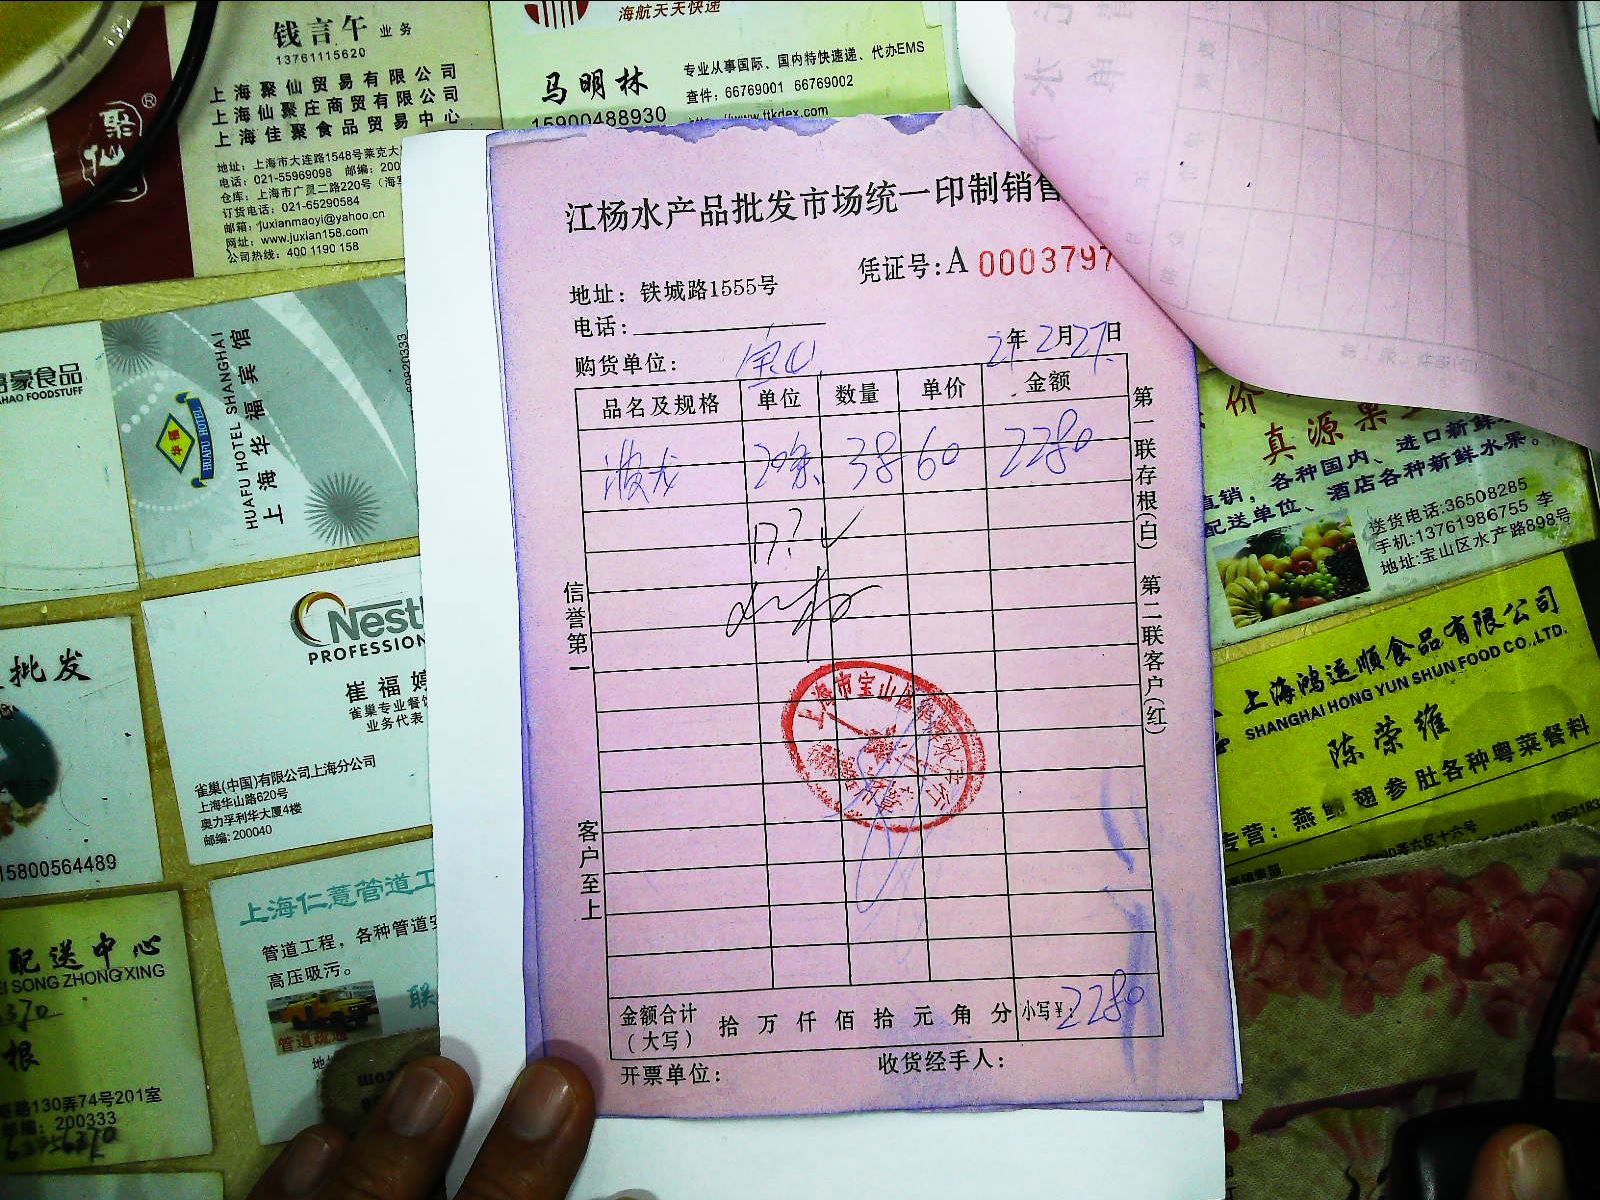 钱言午 业务
13761115620
上海聚仙贸易有限公司
上海仙聚庄商贸有限公司
上海佳聚食品贸易中心
地址: 上海市大连路1548号莱克大
电话: 021-55969098 邮编: 200
仓库: 上海市广灵二路220号
订货电话: 021-65290584
邮箱: juxianmaoyi@yahoo.cn
网址: www.juxian158.com
公司热线: 400 1190 158
聚仙
®
海航天天快递
马明林
15900488930
专业从事国际、国内特快速递、代办EMS
查件: 66769001 66769002
www.ttkdex.com
江杨水产品批发市场统一印制销售
凭证号: A 0003797
地址: 铁城路1555号
电话:
购货单位: 宝山
21年2月27日
品名及规格 单位 数量 单价 金额
波龙 38 60 2280
信誉第一
客户至上
第一联存根(白) 第二联客户(红)
上海市宝山区
金额合计(大写) 拾万仟佰拾元角分 小写¥: 2280
开票单位: 收货经手人:
豪食品
AHAO FOODSTUFF
华福
HUAFU HOTEL
HUAFU HOTEL SHANGHAI
上海华福宾馆
批发
15800564489
Nestl
PROFESSION
崔福婷
雀巢专业餐饮
业务代表
雀巢(中国)有限公司上海分公司
上海华山路620号
奥力孚利华大厦4楼
邮编: 200040
上海仁薏管道工
管道工程, 各种管道
高压吸污。
联
管道疏通
配送中心
I SONG ZHONG XING
370
根
路130弄74号201室
邮编: 200333
价
真源果
直销, 各种国内、进口新鲜
配送单位、酒店各种新鲜水果。
送货电话:36508285
手机:13761986755 李
地址:宝山区水产路898号
上海鸿运顺食品有限公司
SHANGHAI HONG YUN SHUN FOOD CO.,LTD.
陈荣维
专营: 燕鲍翅参肚各种粤菜餐料
弄六区十六号